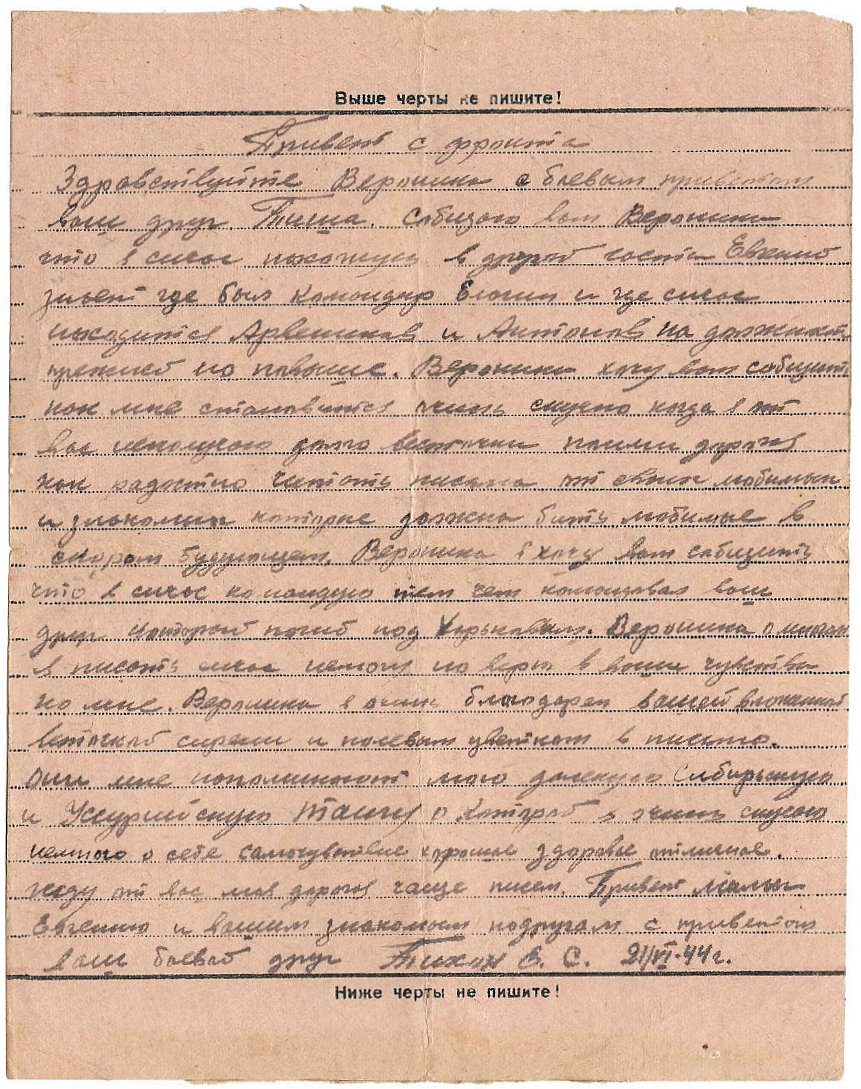 Выше черты не пишите!
Привет с фронта
Здравствуйте Вероника с боевым приветом
ваш друг Тиша. Сабщаю вам Вероника
что я сичас нахожусь в другой части Евгений
знает где был командир и где сичас
находится и Антонов на должности
прежней но повыше. Вероника хочу вам сабщить
как мне становится очень скучно когда я от
вас неполучаю долго весточки
как радостно читать писма от своих любимых
и знакомых которые должны быть любимые в
скором будующем. Вероника я хочу вам сабщить
что я сичас командую тем чем командовал ваш
друг который погиб под Харьковым. Вероника о многом
я писать сичас немогу но верю в ваши чувства
ко мне. Вероника я очень благодарен вашей вложенной
веточкой сирени и полевым цветком в писмо.
Они мне напоминают мою далекую Сибирьскую
и Уссурийскую тайгу о которой я очень скучаю
немного о себе самочувствие хорошое здоровье отличное.
жду от вас моя дорогая чаще писем. Привет
Евгению и вашим знакомым подругам с приветом
ваш боевой друг Тихон В. С. 21/VI-44г.
Ниже черты не пишите!